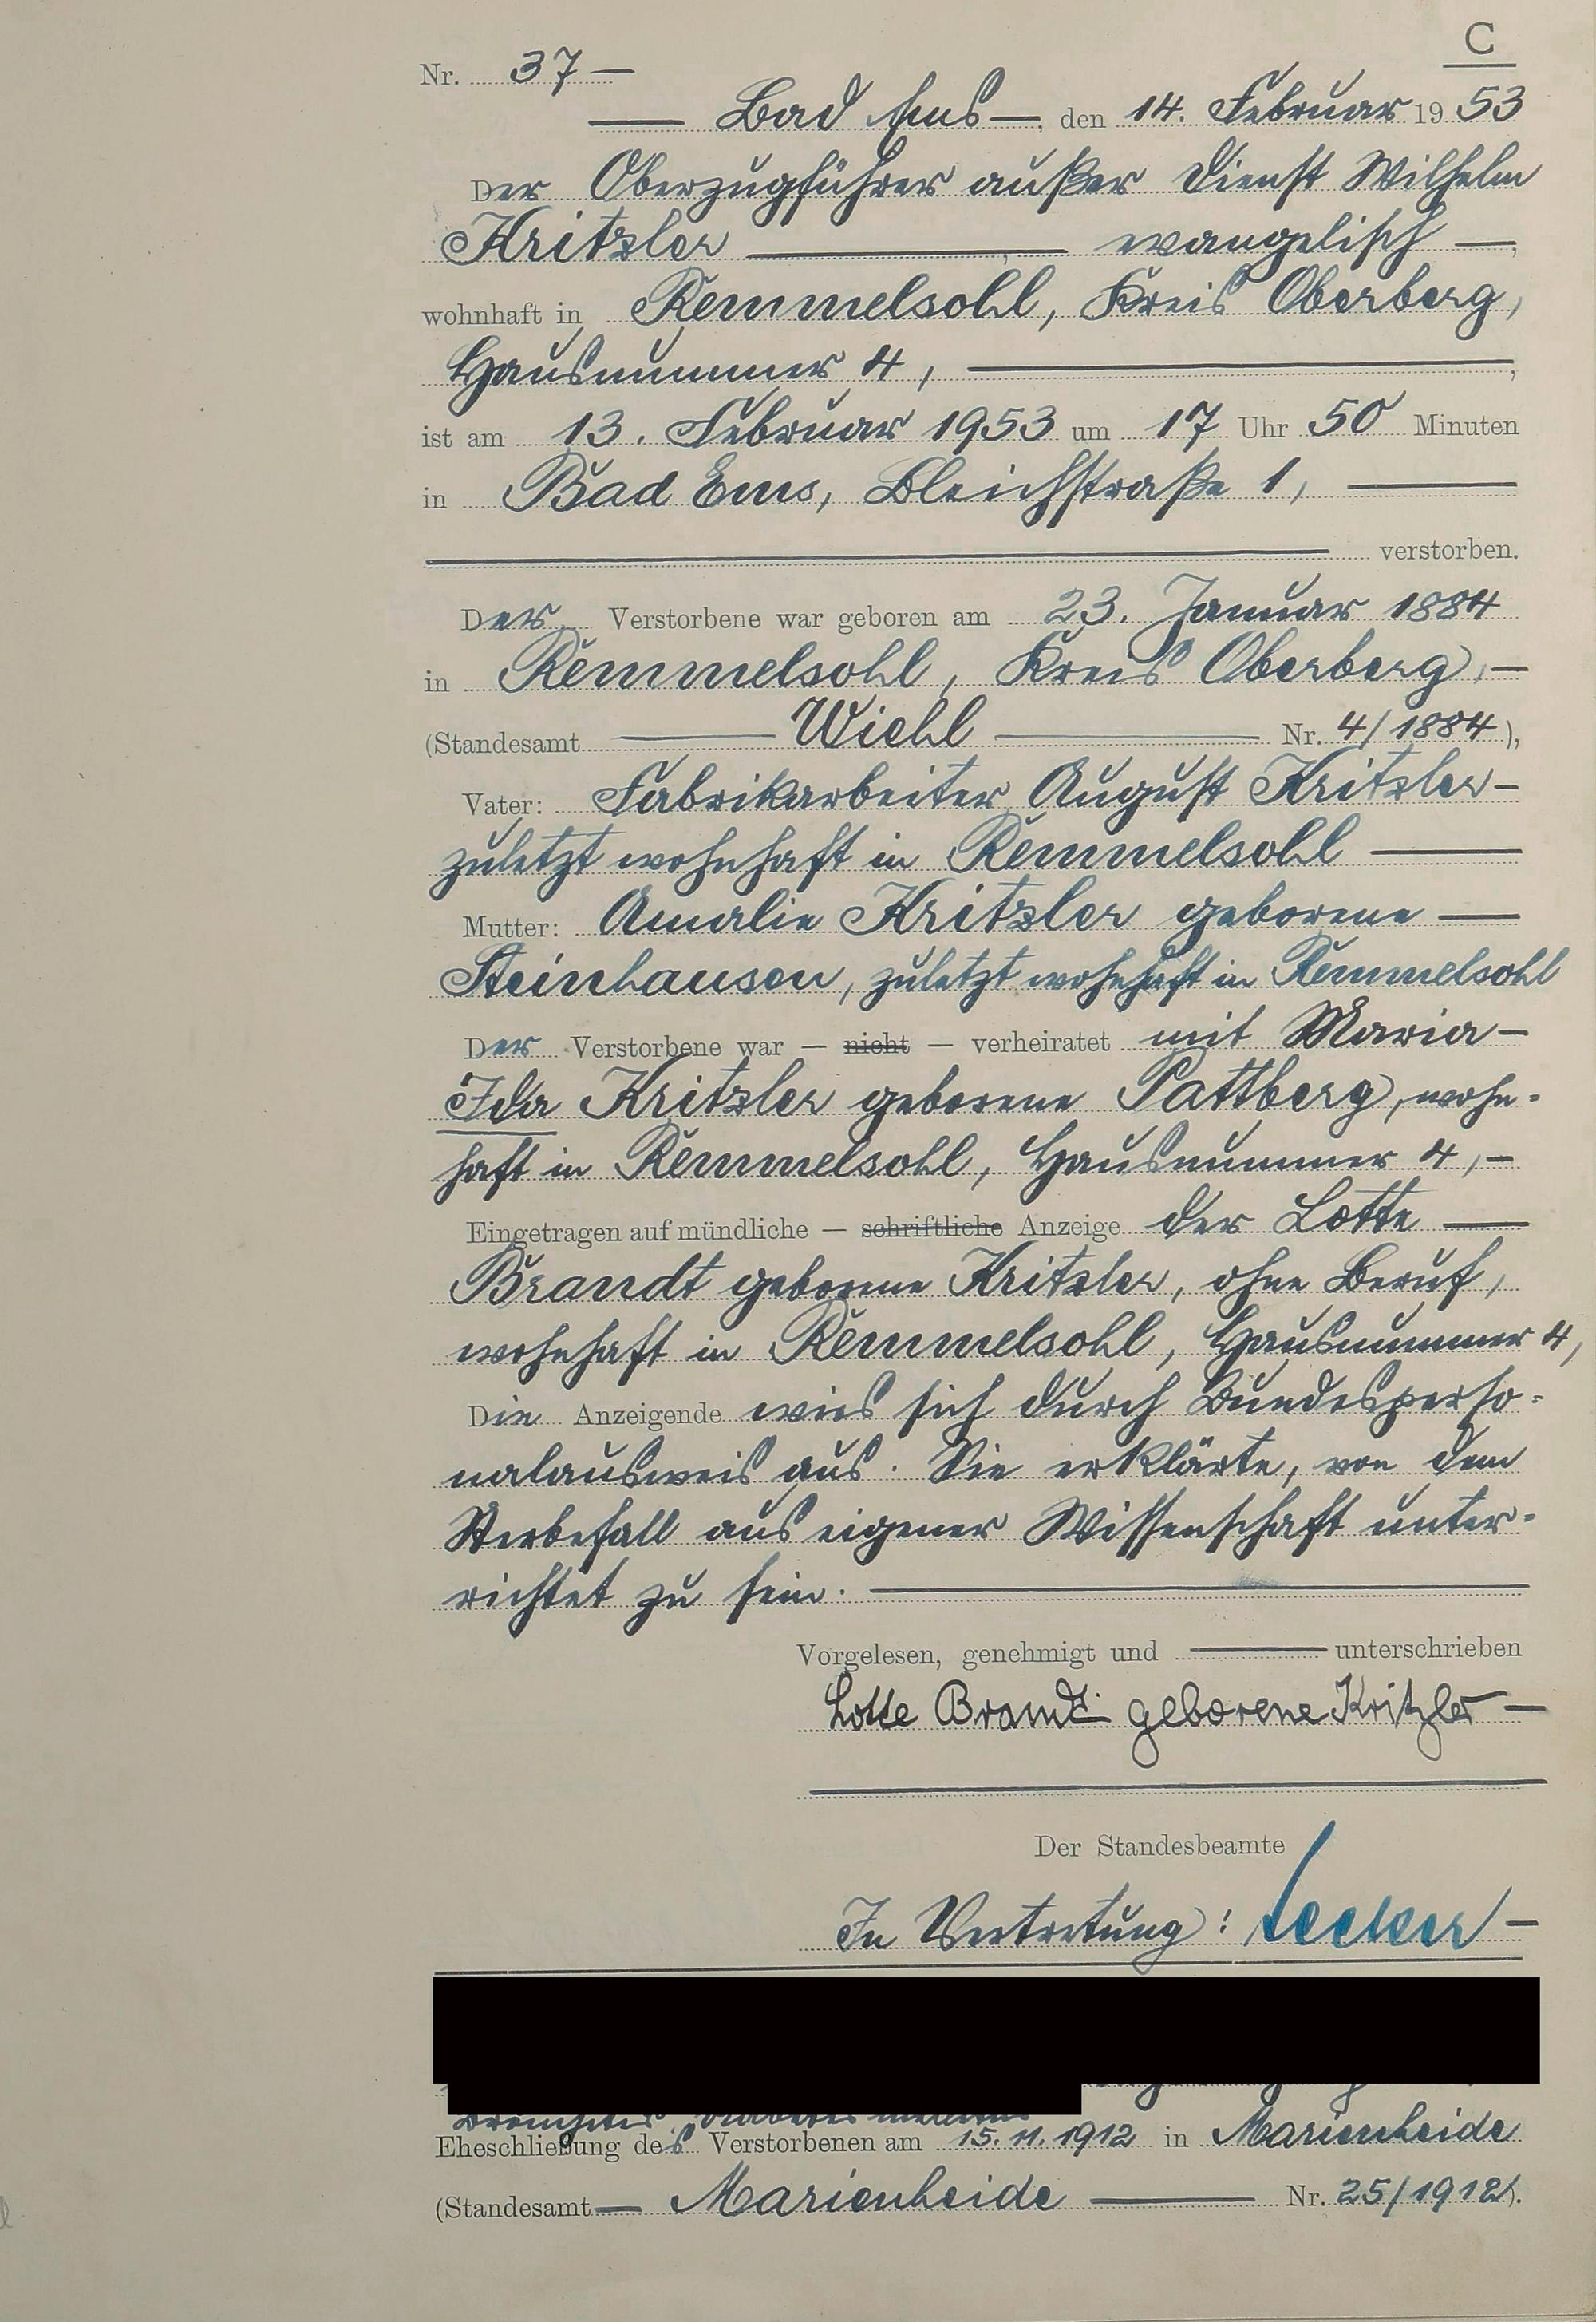 C
Nr. 37 —
— Bad Ems —, den 14. Februar 1953
Der Oberzugführer außer Dienst Wilhelm
Kritzler — evangelisch —,
wohnhaft in Remmelsohl, Kreis Oberberg,
Hausnummer 4, —,
ist am 13. Februar 1953 um 17 Uhr 50 Minuten
in Bad Ems, Bleichstraße 1, —
— verstorben.
Der Verstorbene war geboren am 23. Januar 1884
in Remmelsohl, Kreis Oberberg, —
(Standesamt — Wiehl — Nr. 4/1884),
Vater: Fabrikarbeiter August Kritzler —
zuletzt wohnhaft in Remmelsohl —
Mutter: Amalie Kritzler geborene —
Steinhausen, zuletzt wohnhaft in Remmelsohl
Der Verstorbene war — nicht — verheiratet mit Maria —
Ida Kritzler geborene Pattberg, wohn-
haft in Remmelsohl, Hausnummer 4, —
Eingetragen auf mündliche — schriftliche Anzeige der Lotte —
Brandt geborene Kritzler, ohne Beruf,
wohnhaft in Remmelsohl, Hausnummer 4,
Die Anzeigende wies sich durch Bundesperso-
nalausweis aus. Sie erklärte, von dem
Sterbefall aus eigener Wissenschaft unter-
richtet zu sein. —
Vorgelesen, genehmigt und — unterschrieben
Lotte Brandt geborene Kritzler —
Der Standesbeamte
In Vertretung: Lecker —
Eheschließung des Verstorbenen am 15.11.1912 in Marienheide
(Standesamt — Marienheide — Nr. 25/1912).